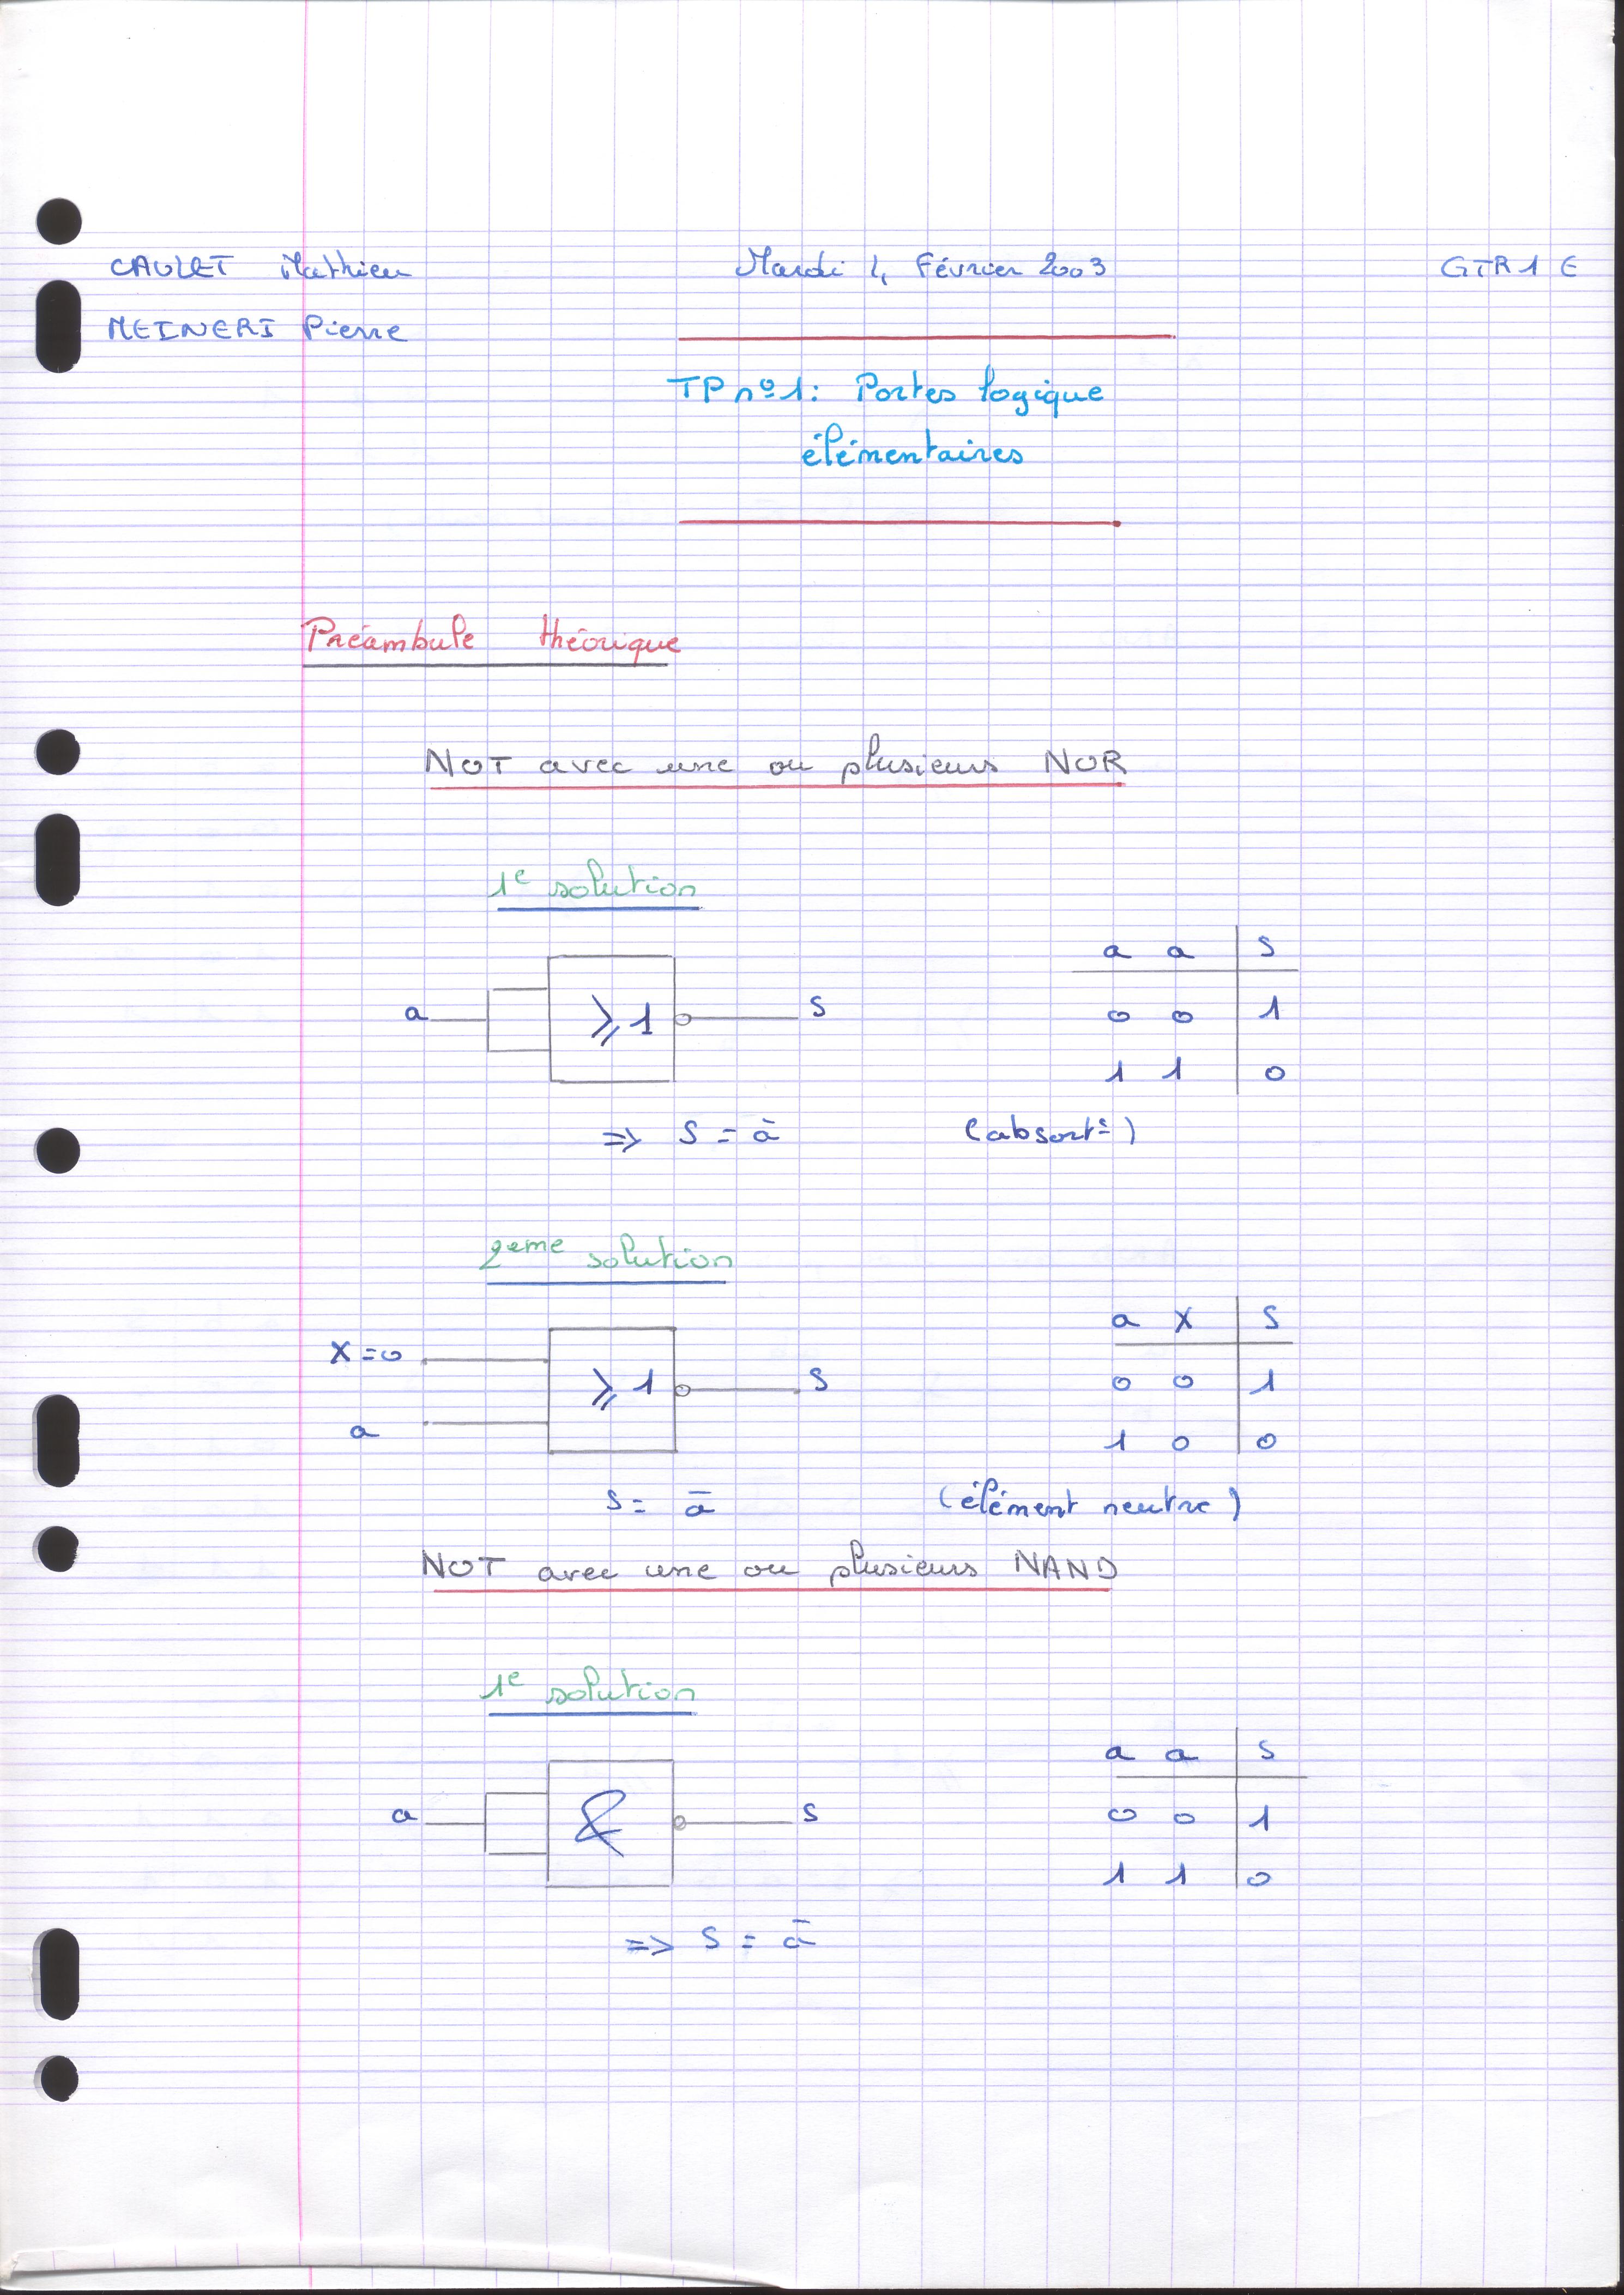 CAULET Mathieu Mardi 4 Février 2003 GTR1 E
MEINERI Pierre
TP n°1: Portes logique
élémentaires
Préambule théorique
NOT avec une ou plusieurs NOR
1e solution
a a S
a ≥1 S
0 0 1
1 1 0
=> S = ā (absort°)
2eme solution
a X S
X=0
≥1 S
0 0 1
a
1 0 0
S = ā (élément neutre)
NOT avec une ou plusieurs NAND
1e solution
a a S
a & S
0 0 1
1 1 0
=> S = ā